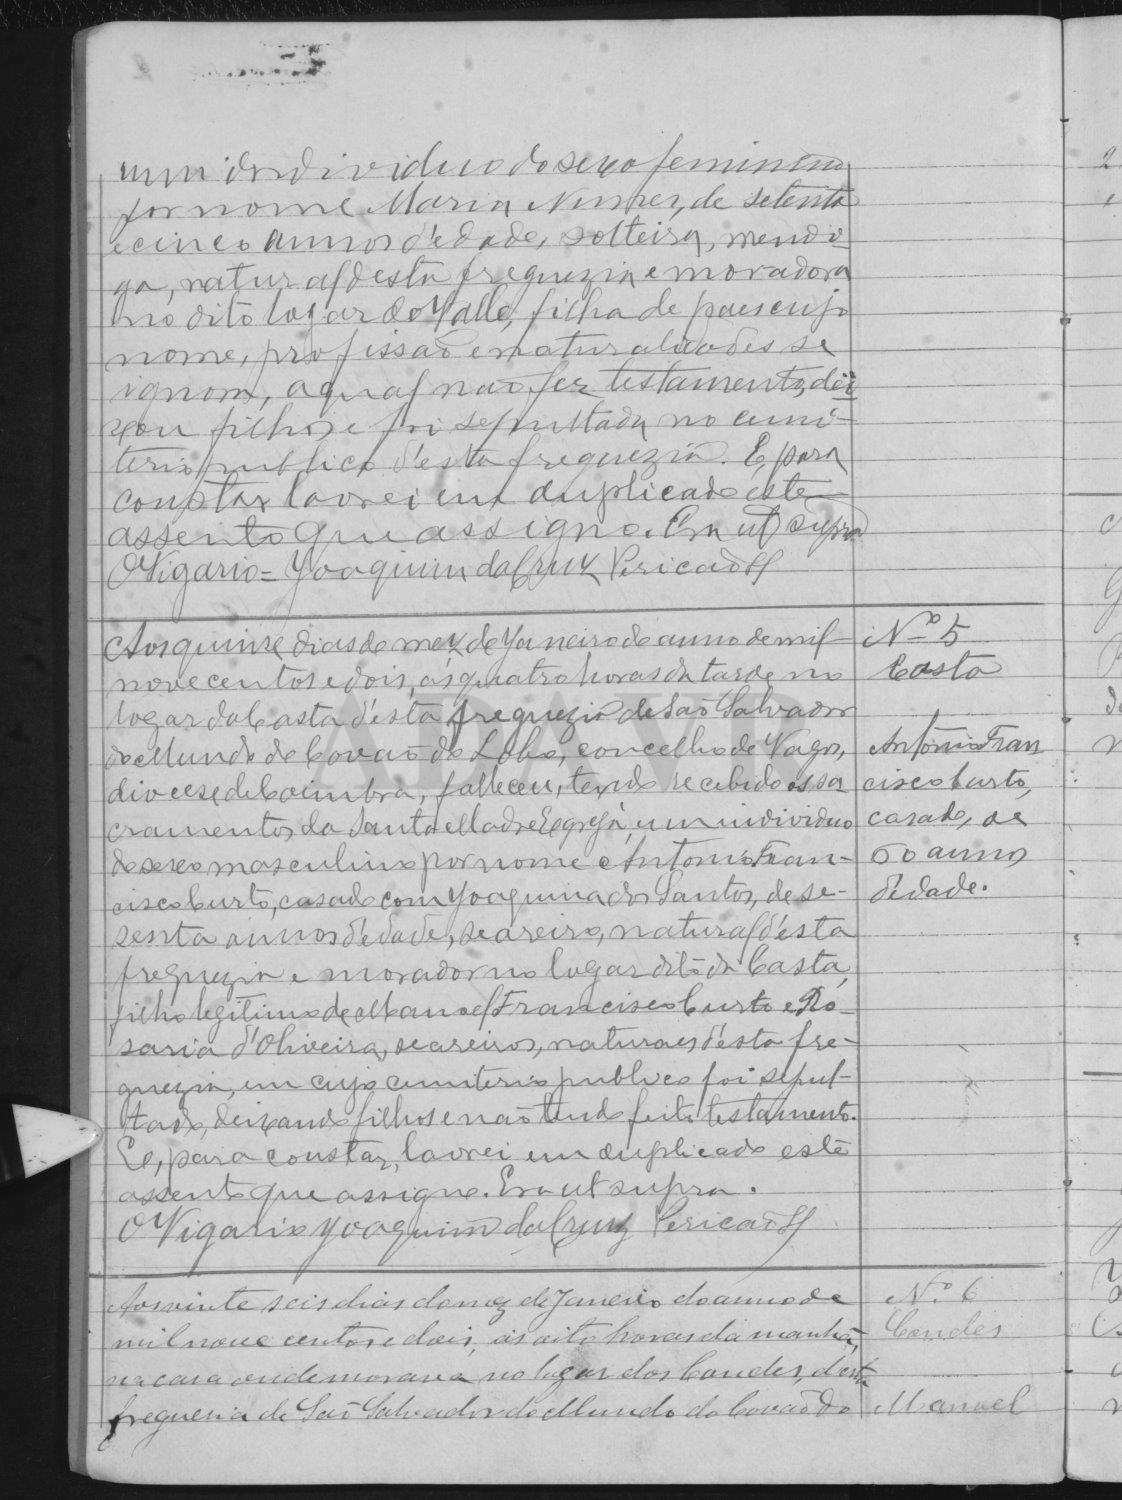 um individuo do sexo feminino
por nome Maria Nunes, de setenta
e cinco annos d'edade, solteira, mendi-
ga, natural d'esta freguezia e moradora
no dito logar do Valle, filha de paes cujo
nome, profissão e naturalidades se
ignora, a qual não fez testamento, dei
xou filhos e foi sepultada no cemi-
terio publico d'esta freguezia. E, para
constar lavrei em duplicado este
assento que assigno. Era ut supra
O Vigario = Joaquim da Cruz Pericão
Aos quinze dias do mez de Janeiro do anno de mil
nove centos e dois, ás quatro horas da tarde no
logar da Casta d'esta freguezia de São Salvador
do Mundo de Covão do Lobo, concelho de Vagos,
diocese de Coimbra, falleceu, tendo recebido os sa
cramentos da Santa Madre Egreja, um individuo
do sexo masculino por nome Antonio Fran-
cisco Curto, casado com Joaquina dos Santos, de se-
senta annos d'edade, seareiro, natural d'esta
freguezia e morador no logar dito da Casta,
filho legitimo de Manoel Francisco Curto e Ro-
saria d'Oliveira, seareiros, naturaes d'esta fre-
guezia, em cujo cemiterio publico foi sepul-
tado, deixando filhos e não tendo feito testamento.
E, para constar, lavrei em duplicado este
assento que assigno. Era ut supra.
O Vigario Joaquim da Cruz Pericão
Aos vinte seis dias do mez de Janeiro do anno de
mil nove centos e dois, ás oito horas da manhã,
na casa onde morava no logar dos Condes, d'esta
freguesia de São Salvador do Mundo do Covão do
Nº 5
Casta
Antonio Fran
cisco Curto,
casado, de
60 annos
d'edade.
N.º 6
Condes
Manoel
ADAVR